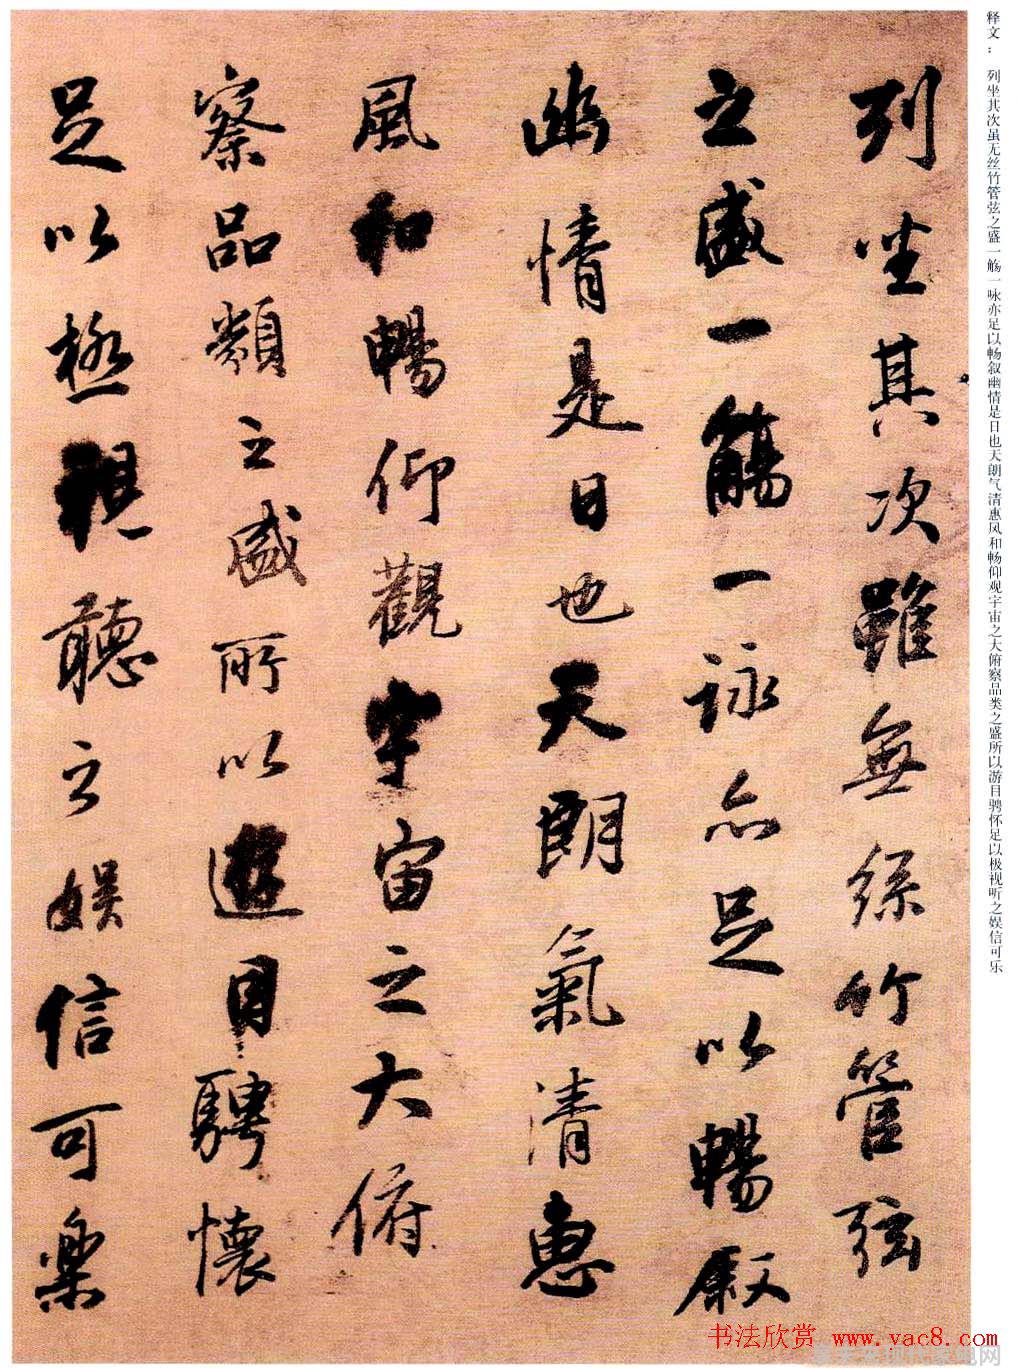 释文：列坐其次虽无丝竹管弦之盛一觞一咏亦足以畅叙幽情是日也天朗气清惠风和畅仰观宇宙之大俯察品类之盛所以游目骋怀足以极视听之娱信可乐
列坐其次雖無絲竹管弦
之盛一觴一詠亦足以暢敘
幽情是日也天朗氣清惠
風和暢仰觀宇宙之大俯
察品類之盛所以遊目騁懷
足以極視聽之娛信可樂
书法欣赏 www.yac8.com